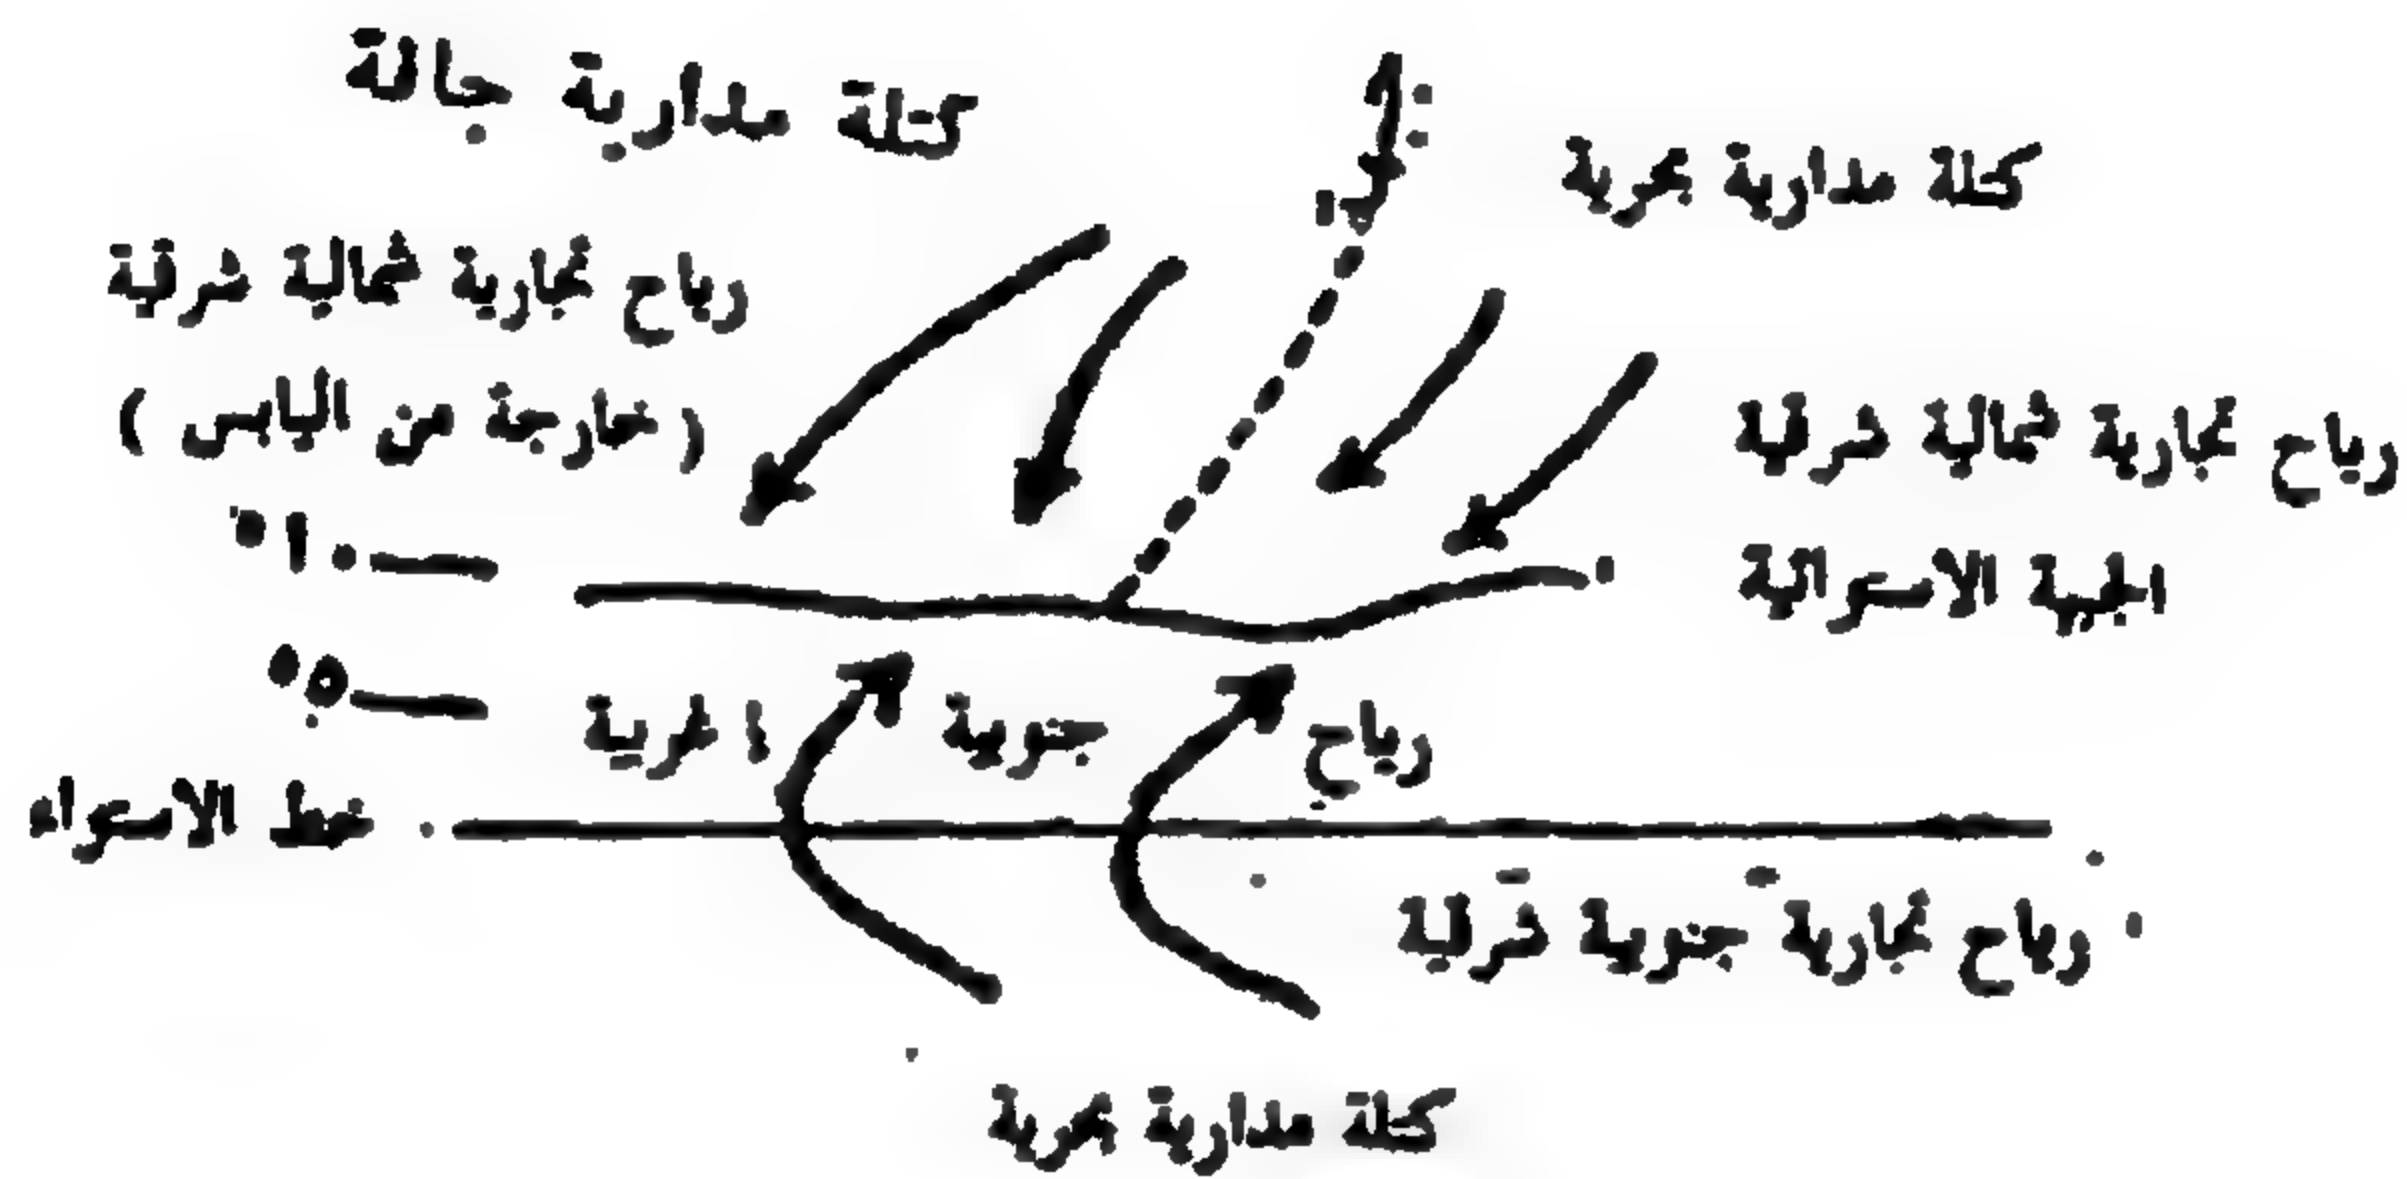 كتلة مدارية جافة
كتلة مدارية بحرية
رياح تجارية شمالية شرقية
(خارجة من اليابس)
رياح تجارية شمالية شرقية
الجبهة الاستوائية
١٠°
٥°
رياح جنوبية غربية
خط الاستواء
رياح تجارية جنوبية شرقية
كتلة مدارية بحرية